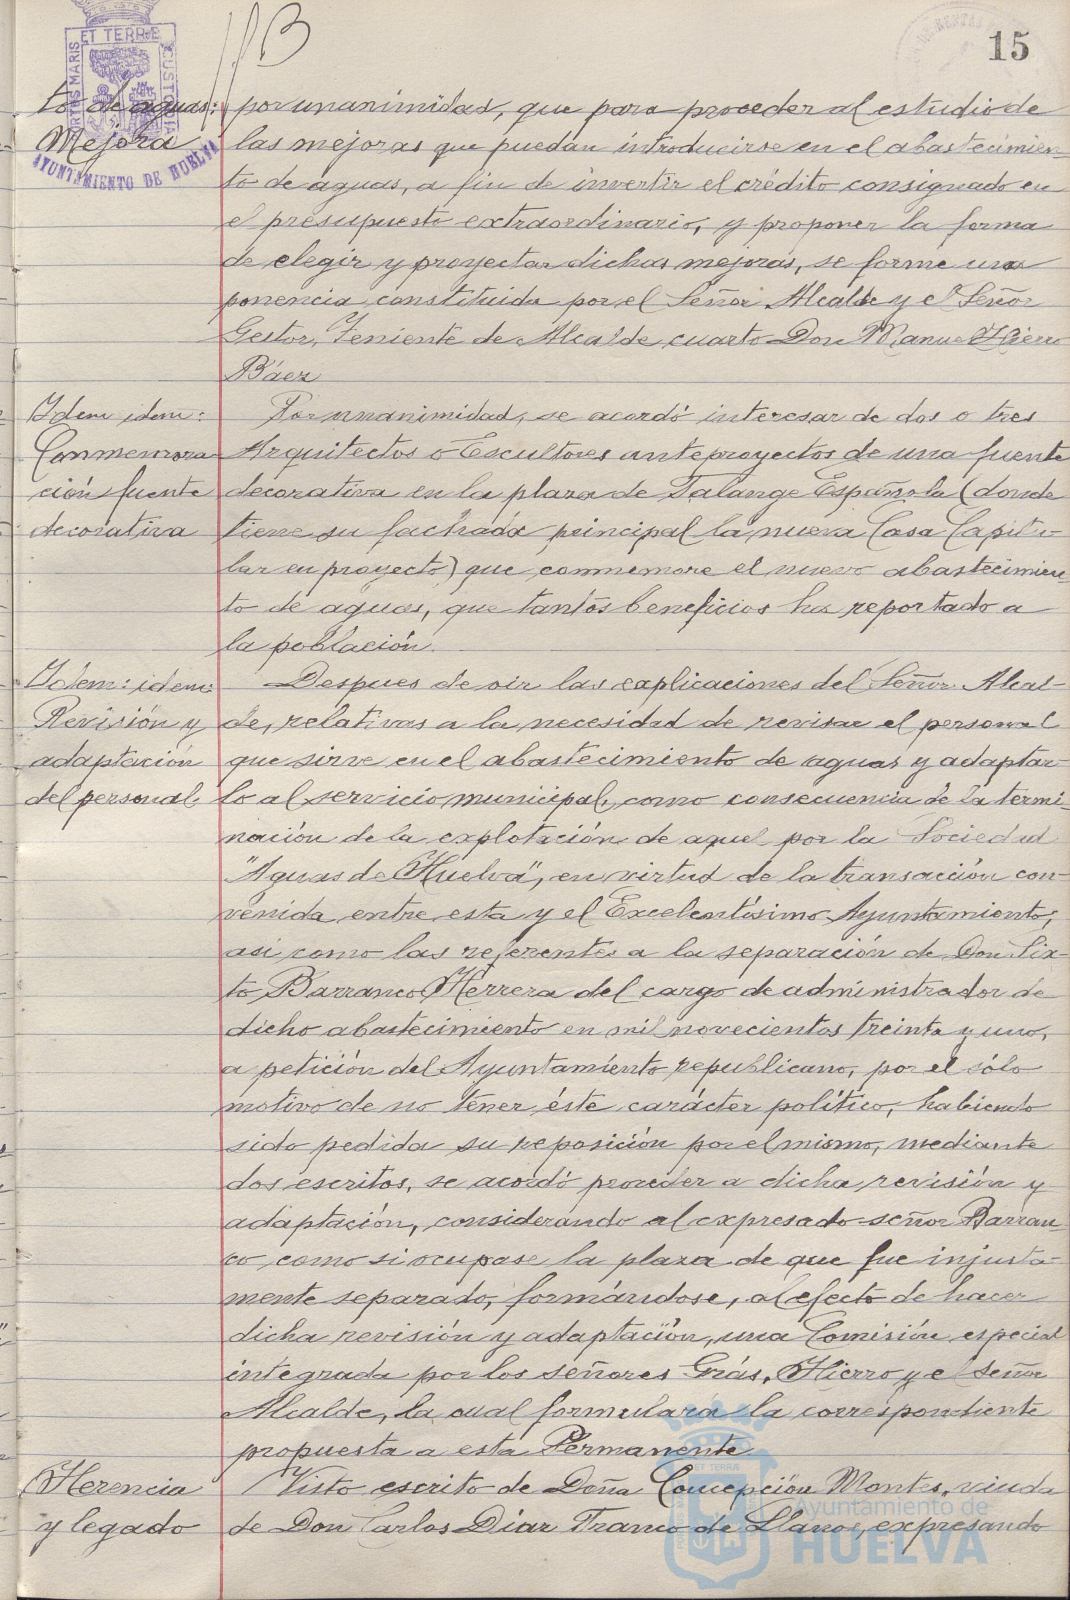 15
to de aguas:
Mejora
ET TERRÆ CUSTODIA
PORTUS MARIS
AYUNTAMIENTO DE HUELVA
por unanimidad, que para proceder al estudio de
las mejoras que puedan introducirse en el abastecimien-
to de aguas, a fin de invertir el crédito consignado en
el presupuesto extraordinario, y proponer la forma
de elegir y proyectar dichas mejoras, se forme una
ponencia constituida por el Señor Alcalde y el Señor
Gestor, Teniente de Alcalde cuarto Don Manuel Hierro
Báez
Idem idem:
Conmemora
ción fuente
decorativa
Por unanimidad, se acordó interesar de dos o tres
Arquitectos o Escultores anteproyectos de una fuente
decorativa en la plaza de Falange Española (donde
tiene su fachada principal la nueva Casa Capitu-
lar en proyecto) que conmemore el nuevo abastecimien-
to de aguas, que tantos beneficios ha reportado a
la población.
Idem: idem:
Revisión y
adaptación
del personal.
Despues de oir las explicaciones del Señor Alcal-
de, relativas a la necesidad de revisar el personal
que sirve en el abastecimiento de aguas y adaptar-
lo al servicio municipal, como consecuencia de la termi-
nación de la explotación de aquel por la Sociedad
"Aguas de Huelva", en virtud de la transacción con-
venida entre esta y el Excelentísimo Ayuntamiento;
asi como las referentes a la separación de Don Six-
to Barranco Herrera del cargo de administrador de
dicho abastecimiento en mil novecientos treinta y uno,
a petición del Ayuntamiento republicano, por el sólo
motivo de no tener éste carácter político, habiendo
sido pedida su reposición por el mismo, mediante
dos escritos, se acordó proceder a dicha revisión y
adaptación, considerando al expresado señor Barran-
co como si ocupase la plaza de que fue injusta-
mente separado, formándose, al efecto de hacer
dicha revisión y adaptación, una Comisión especial
integrada por los señores Grás, Hierro y el Señor
Alcalde, la cual formulará la correspondiente
propuesta a esta Permanente
Herencia
y legado
Visto escrito de Doña Concepción Montes, viuda
de Don Carlos Díaz Franco de Llanos, expresando
Ayuntamiento de
HUELVA